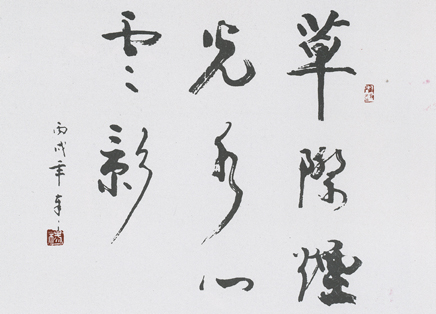 草際煙
光水心
雲影
丙戌年